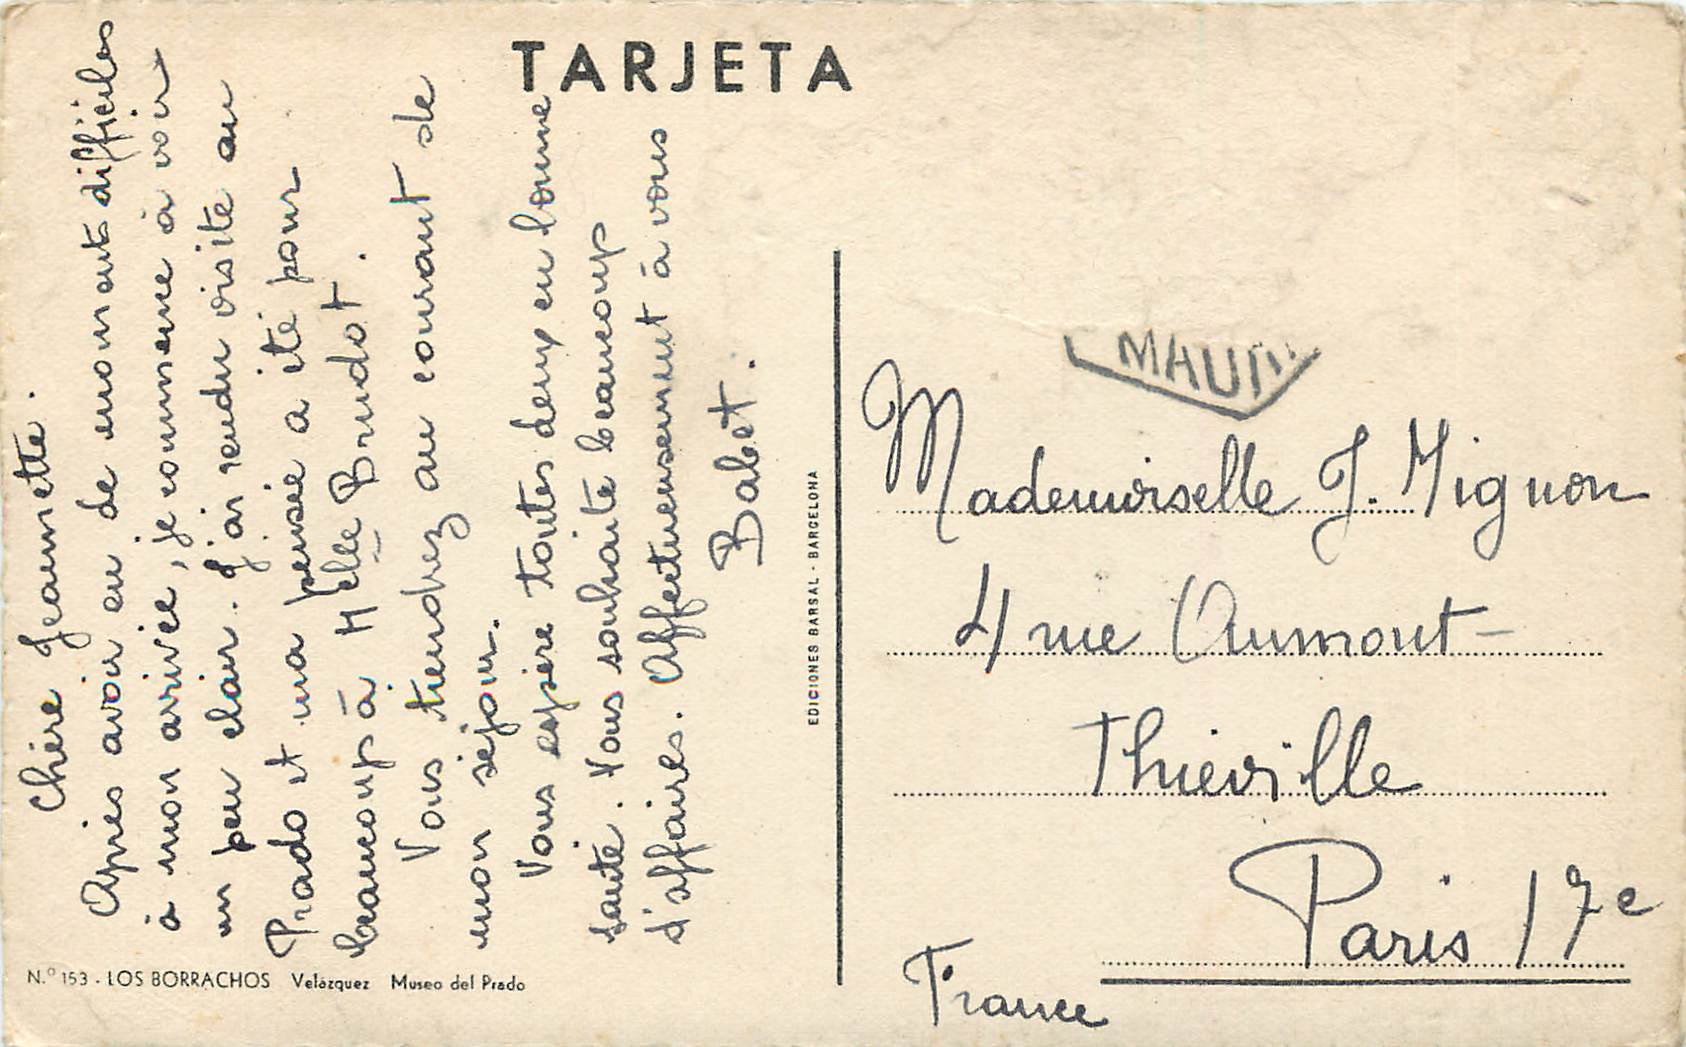 TARJETA
Chère Jeannette.
Après avoir eu de moments difficiles
à mon arrivée, je commence à voir
un peu clair. J'ai rendu visite au
Prado et ma pensée a été pour
beaucoup à Melle Brudot.
Vous tiendrez au courant de
mon séjour.
Vous espère toutes deux en bonne
santé. Vous souhaite beaucoup
d'affaires. Affectueusement à vous
Babet.
N.º 153 - LOS BORRACHOS Velázquez Museo del Prado
EDICIONES BARSAL - BARCELONA
Mademoiselle J. Mignon
4 rue Aumont-
Thieville
Paris 17e
France